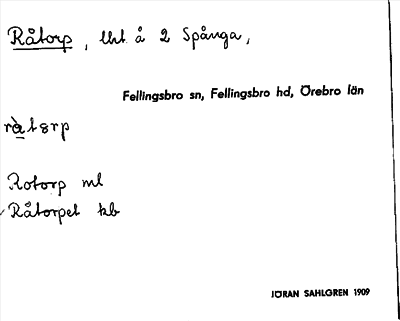 Råtorp, lht å 2 Spånga,
Fellingsbro sn, Fellingsbro hd, Örebro län
Rotorp ml
Råtorpet kb
JÖRAN SAHLGREN 1909